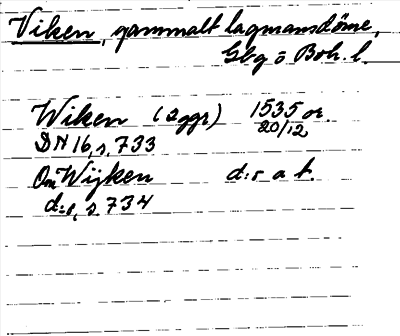 Viken, gammalt lagmansdöme,
Gbg o Boh. l.
Wiken (2 ggr) 1535 or.
20/12
DN 16, s. 733
On Wijken d:o a t.
d:o, s. 734